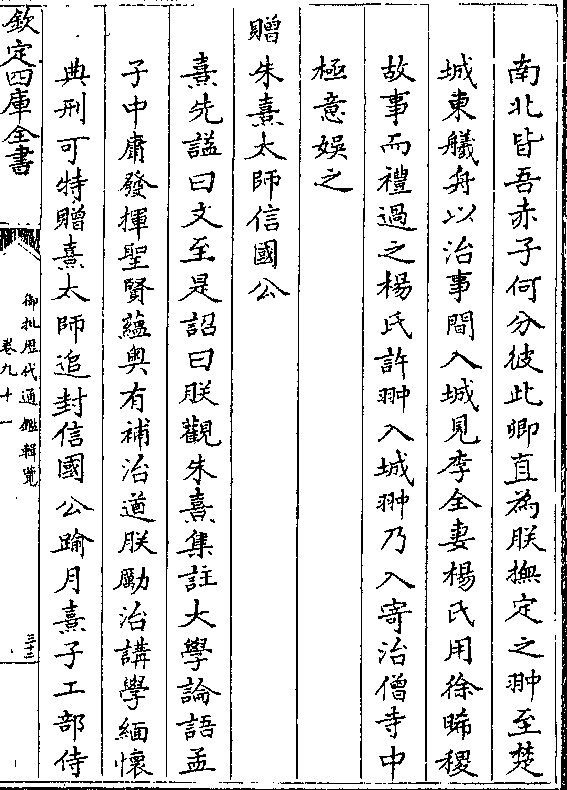 南北皆吾赤子何分彼此卿直為朕撫定之翀至楚
城東艤舟以治事間入城見李全妻楊氏用徐晞稷
故事而禮過之楊氏許翀入城翀乃入寄治僧寺中
極意娛之
贈朱熹太師信國公
熹先諡曰文至是詔曰朕觀朱熹集註大學論語孟
子中庸發揮聖賢蘊奧有補治道朕勵治講學緬懷
典刑可特贈熹太師追封信國公踰月熹子工部侍
欽定四庫全書
御批歷代通鑑輯覽
卷九十一
三十三